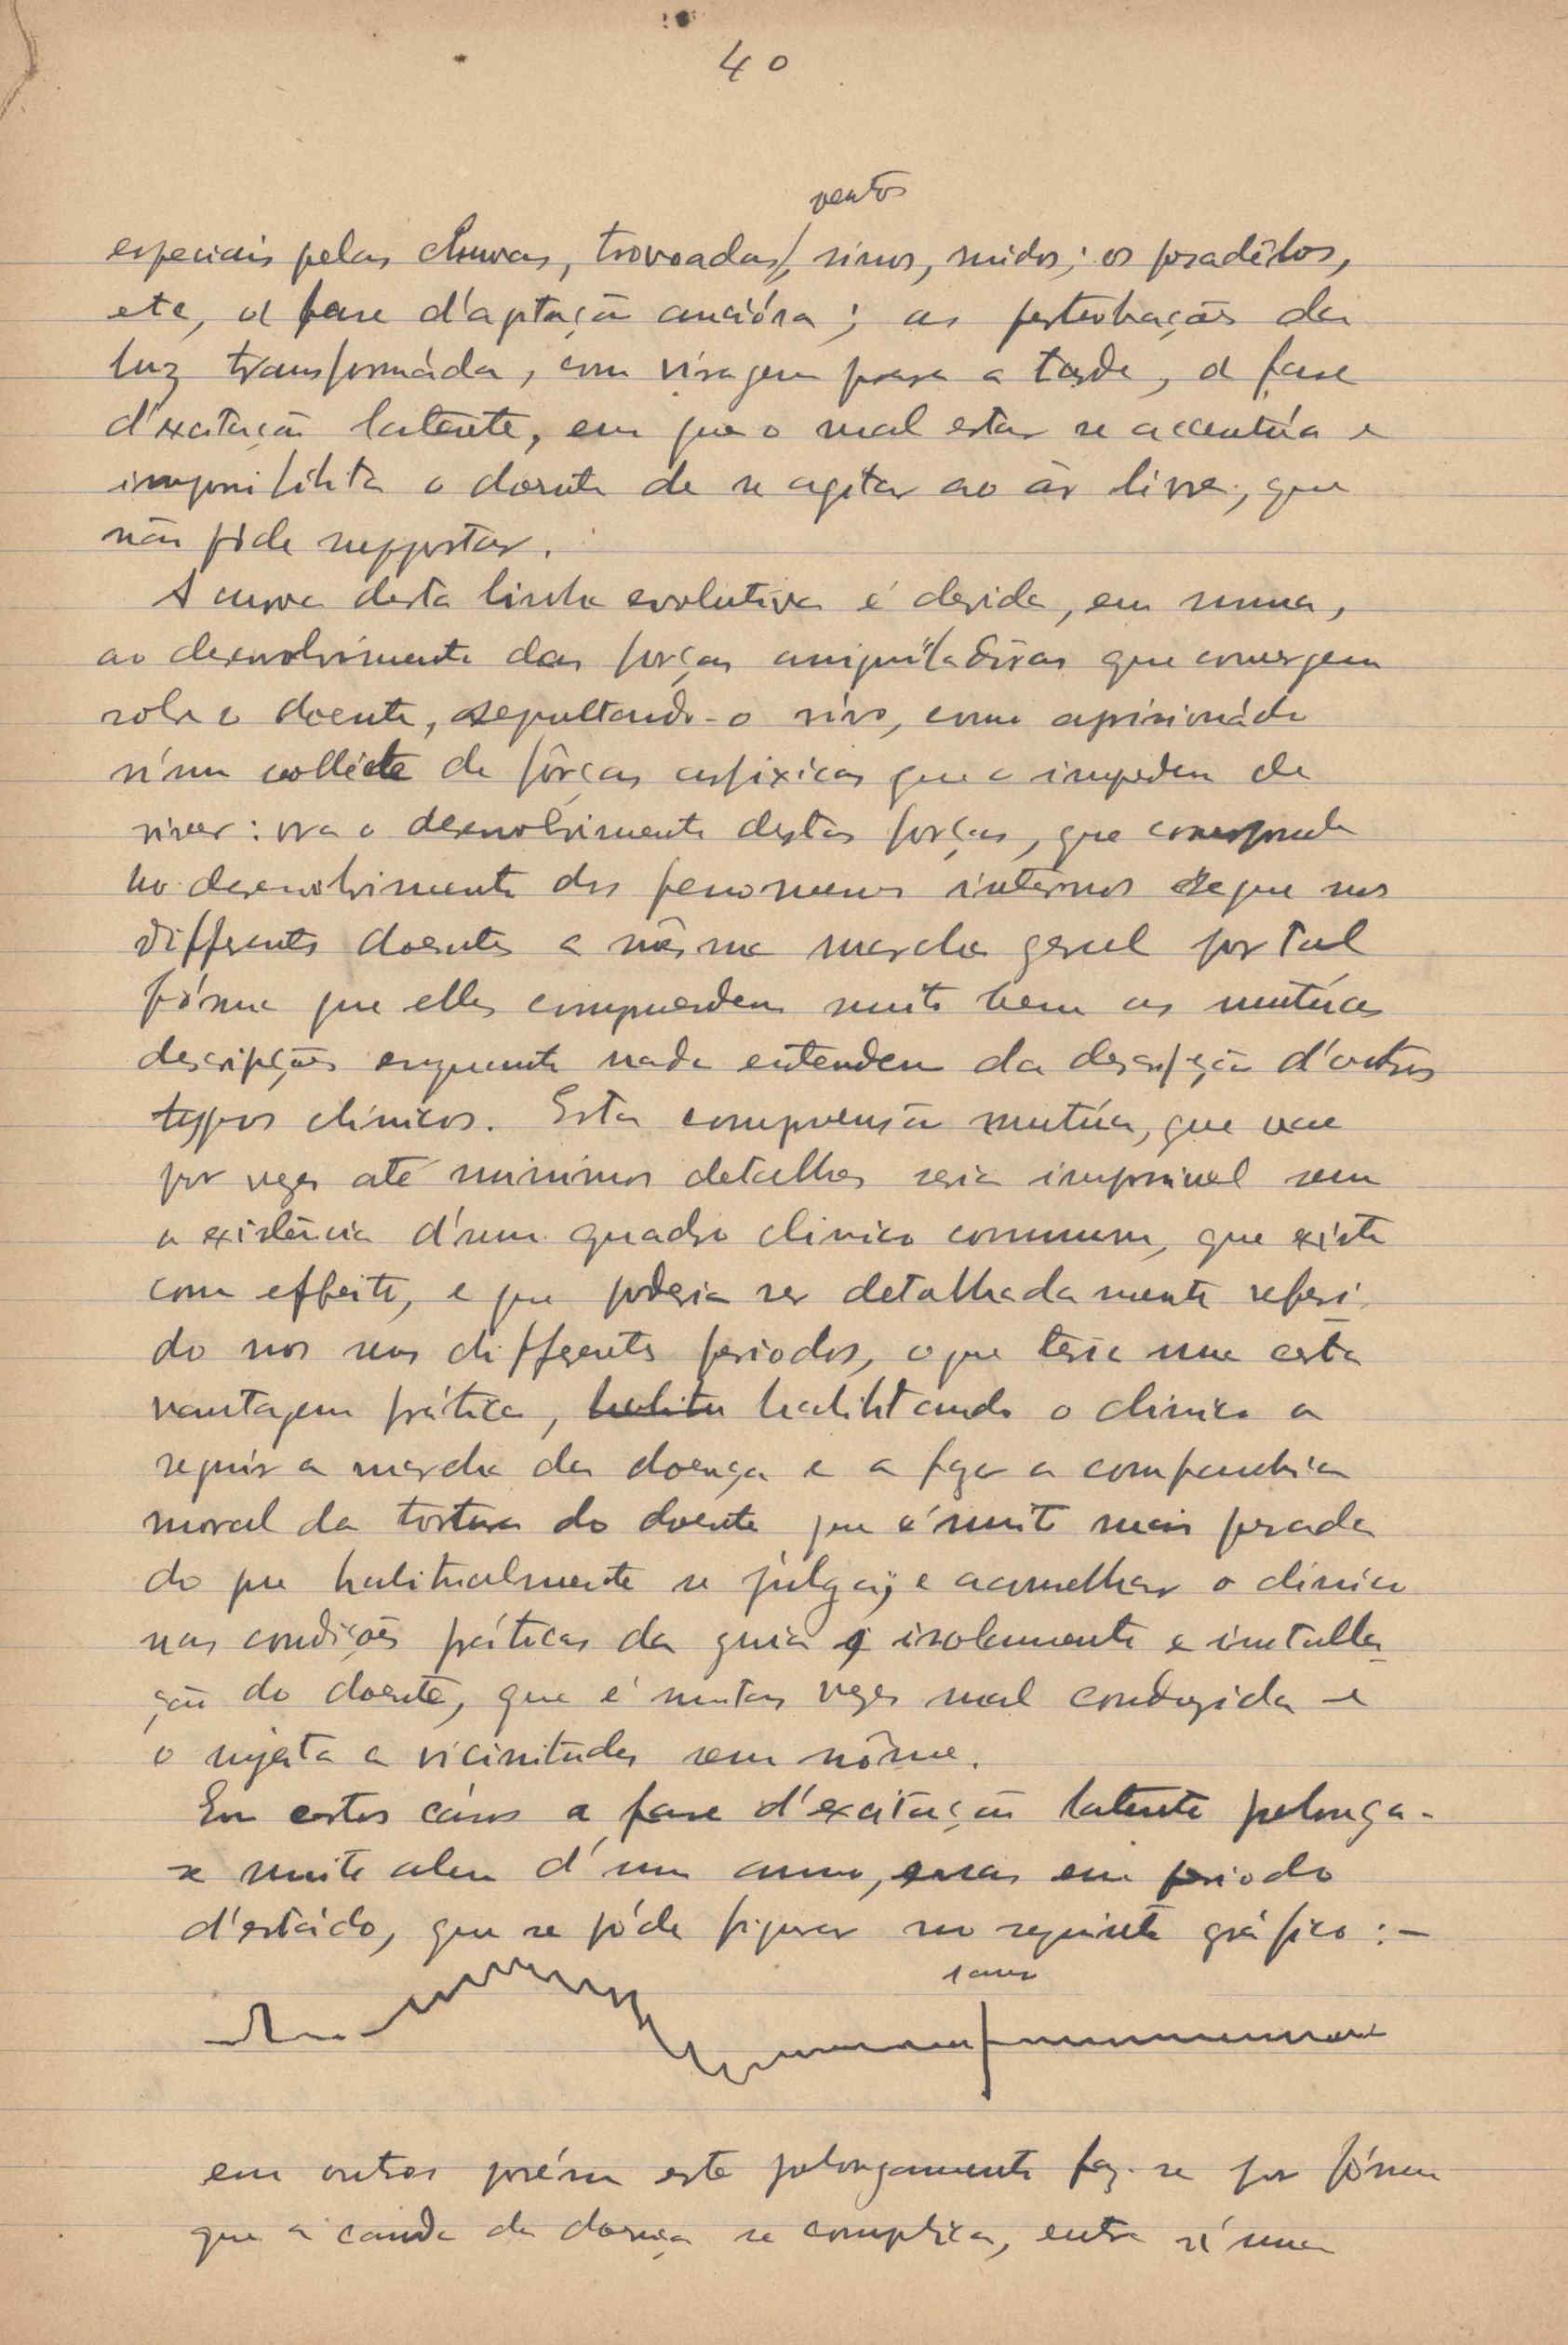 40
ventos
especiais pelas chuvas, trovoadas, sinos, ruidos; os pesadêlos,
etc, á fase d'aptação anciósa; as pertubações da
luz transformáda, com viragem para a tarde, á fase
d'excitação latente, em que o mal estar se accentúa e
impossibilita o doente de se agitar ao ár livre, que
não póde suppportar.
A curva desta linha evolutiva é devida, em suma,
ao desenvolvimento das forças aniquiladôras que convergem
sobre o doente, sepultando-o vivo, como aprisionádo
n'um collête de fôrças asfixicas que o impedem de
viver: ora o desenvolvimento destas forças, que corresponde
ao desenvolvimento dos fenomenos internos segue nos
differentes doentes a mêsma marcha geral por tal
fórma que elles comprendem muito bem as mutúas
descripções enquanto nada entendem da descripção d'outros
typos clinicos. Esta comprensão mutúa, que vae
por vezes até minimos detalhes seria impossivel sem
a existência d'um quadro clinico commum, que existe
com effeito, e que poderia ser detalhadamente referi-
do nos seus differentes periodos, o que teria uma certa
vantagem prática, habilitando o clinico a
seguir a marcha da doença e a fazer a companhia
moral da tortura do doente que é muito mais pesada
do que habitualmente se julga; e aconselhar o clinico
nas condições práticas da guia, isolamento e installa-
ção do doente, que é muitas vezes mal conduzida e
o sujeita a vicissitudes sem nôme.
Em certos cásos a fase d'excitação latente prolonga-
se muito alem d'um anno, mas em periodo
d'estádo, que se póde figurar no seguinte gráfico :-
1 anno
em outros porém este prolongamento faz-se por fórma
que a cauda da doença se complica, entra n'uma